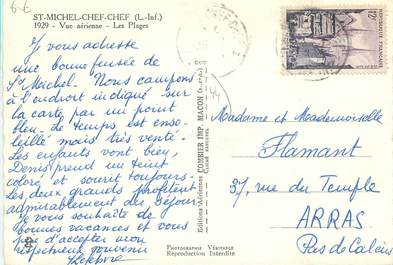 ST-MICHEL-CHEF-CHEF (L.-Inf.)
1929 - Vue aérienne - Les Plages
Je vous adresse
une bonne pensée de
St Michel. Nous campons
à l'endroit indiqué sur
la carte par un point
bleu. Le temps est enso-
leillé mais très venté.
Les enfants vont bien,
Denis prend un teint
coloré et sourit toujours.
Les deux grands profitent
admirablement du séjour.
Je vous souhaite de
bonnes vacances et vous
prie d'accepter mon
respectueux souvenir
Lefebvre
Editions Aériennes COMBIER IMP. MACON (S.-et-L.)
PHOTOGRAPHIE VÉRITABLE
Reproduction Interdite
12F
REPUBLIQUE FRANÇAISE
Madame et Mademoiselle
Flamant
37, rue du Temple
ARRAS
Pas de Calais